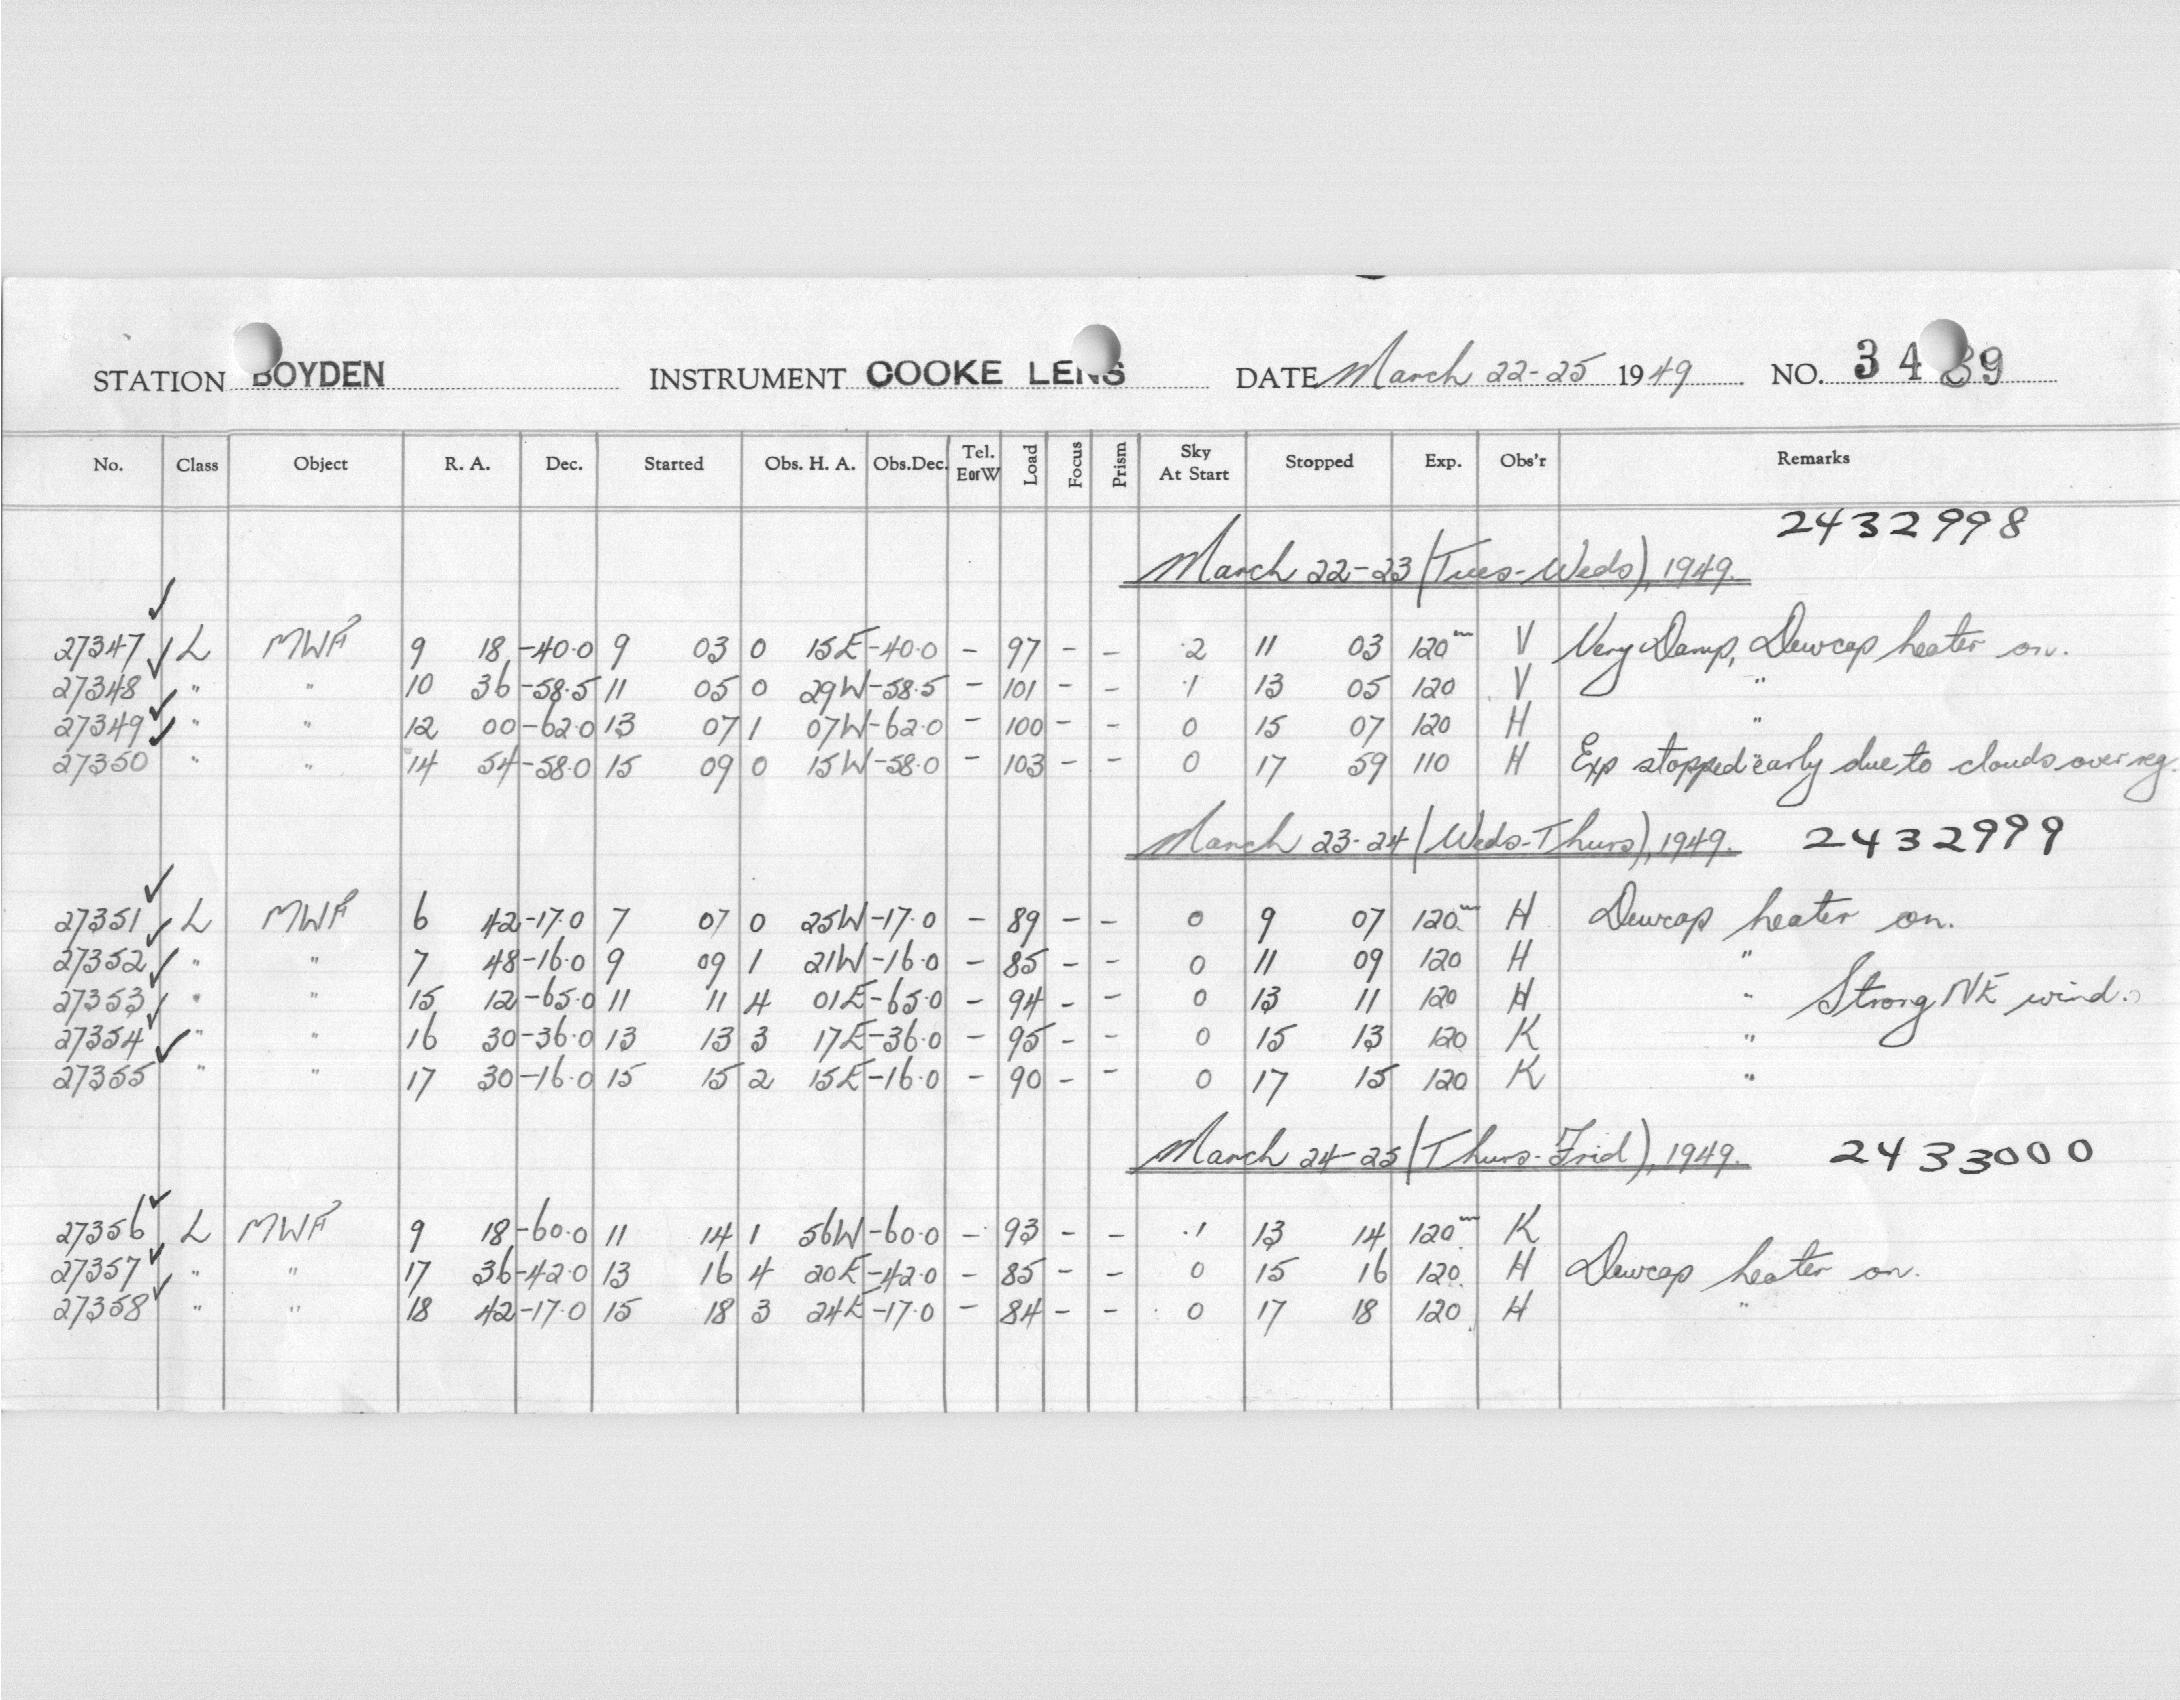 STATION BOYDEN INSTRUMENT COOKE LENS DATE March 22-25 1949 NO. 3439
No. Class Object R. A. Dec. Started Obs. H. A. Obs.Dec. Tel. E or W Load Focus Prism Sky At Start Stopped Exp. Obs'r Remarks
2432998
March 22-23 (Tues-Weds), 1949.
27347 L MWF 9 18 -40.0 9 03 0 15E -40.0 - 97 - - .2 11 03 120m V Very Damp, Dewcap heater on.
27348 " " 10 36 -58.5 11 05 0 29W -58.5 - 101 - - .1 13 05 120 V "
27349 " " 12 00 -62.0 13 07 1 07W -62.0 - 100 - - 0 15 07 120 H "
27350 " " 14 54 -58.0 15 09 0 15W -58.0 - 103 - - 0 17 59 110 H Exp stopped early due to clouds over reg.
March 23-24 (Weds-Thurs), 1949. 2432999
27351 L MWF 6 42 -17.0 7 07 0 25W -17.0 - 89 - - 0 9 07 120m H Dewcap heater on.
27352 " " 7 48 -16.0 9 09 1 21W -16.0 - 85 - - 0 11 09 120 H "
27353 " " 15 12 -65.0 11 11 4 01E -65.0 - 94 - - 0 13 11 120 H " Strong NE wind.
27354 " " 16 30 -36.0 13 13 3 17E -36.0 - 95 - - 0 15 13 120 K "
27355 " " 17 30 -16.0 15 15 2 15E -16.0 - 90 - - 0 17 15 120 K "
March 24-25 (Thurs-Frid), 1949. 2433000
27356 L MWF 9 18 -60.0 11 14 1 56W -60.0 - 93 - - .1 13 14 120m K
27357 " " 17 36 -42.0 13 16 4 20E -42.0 - 85 - - 0 15 16 120 H Dewcap heater on.
27358 " " 18 42 -17.0 15 18 3 24E -17.0 - 84 - - 0 17 18 120 H "